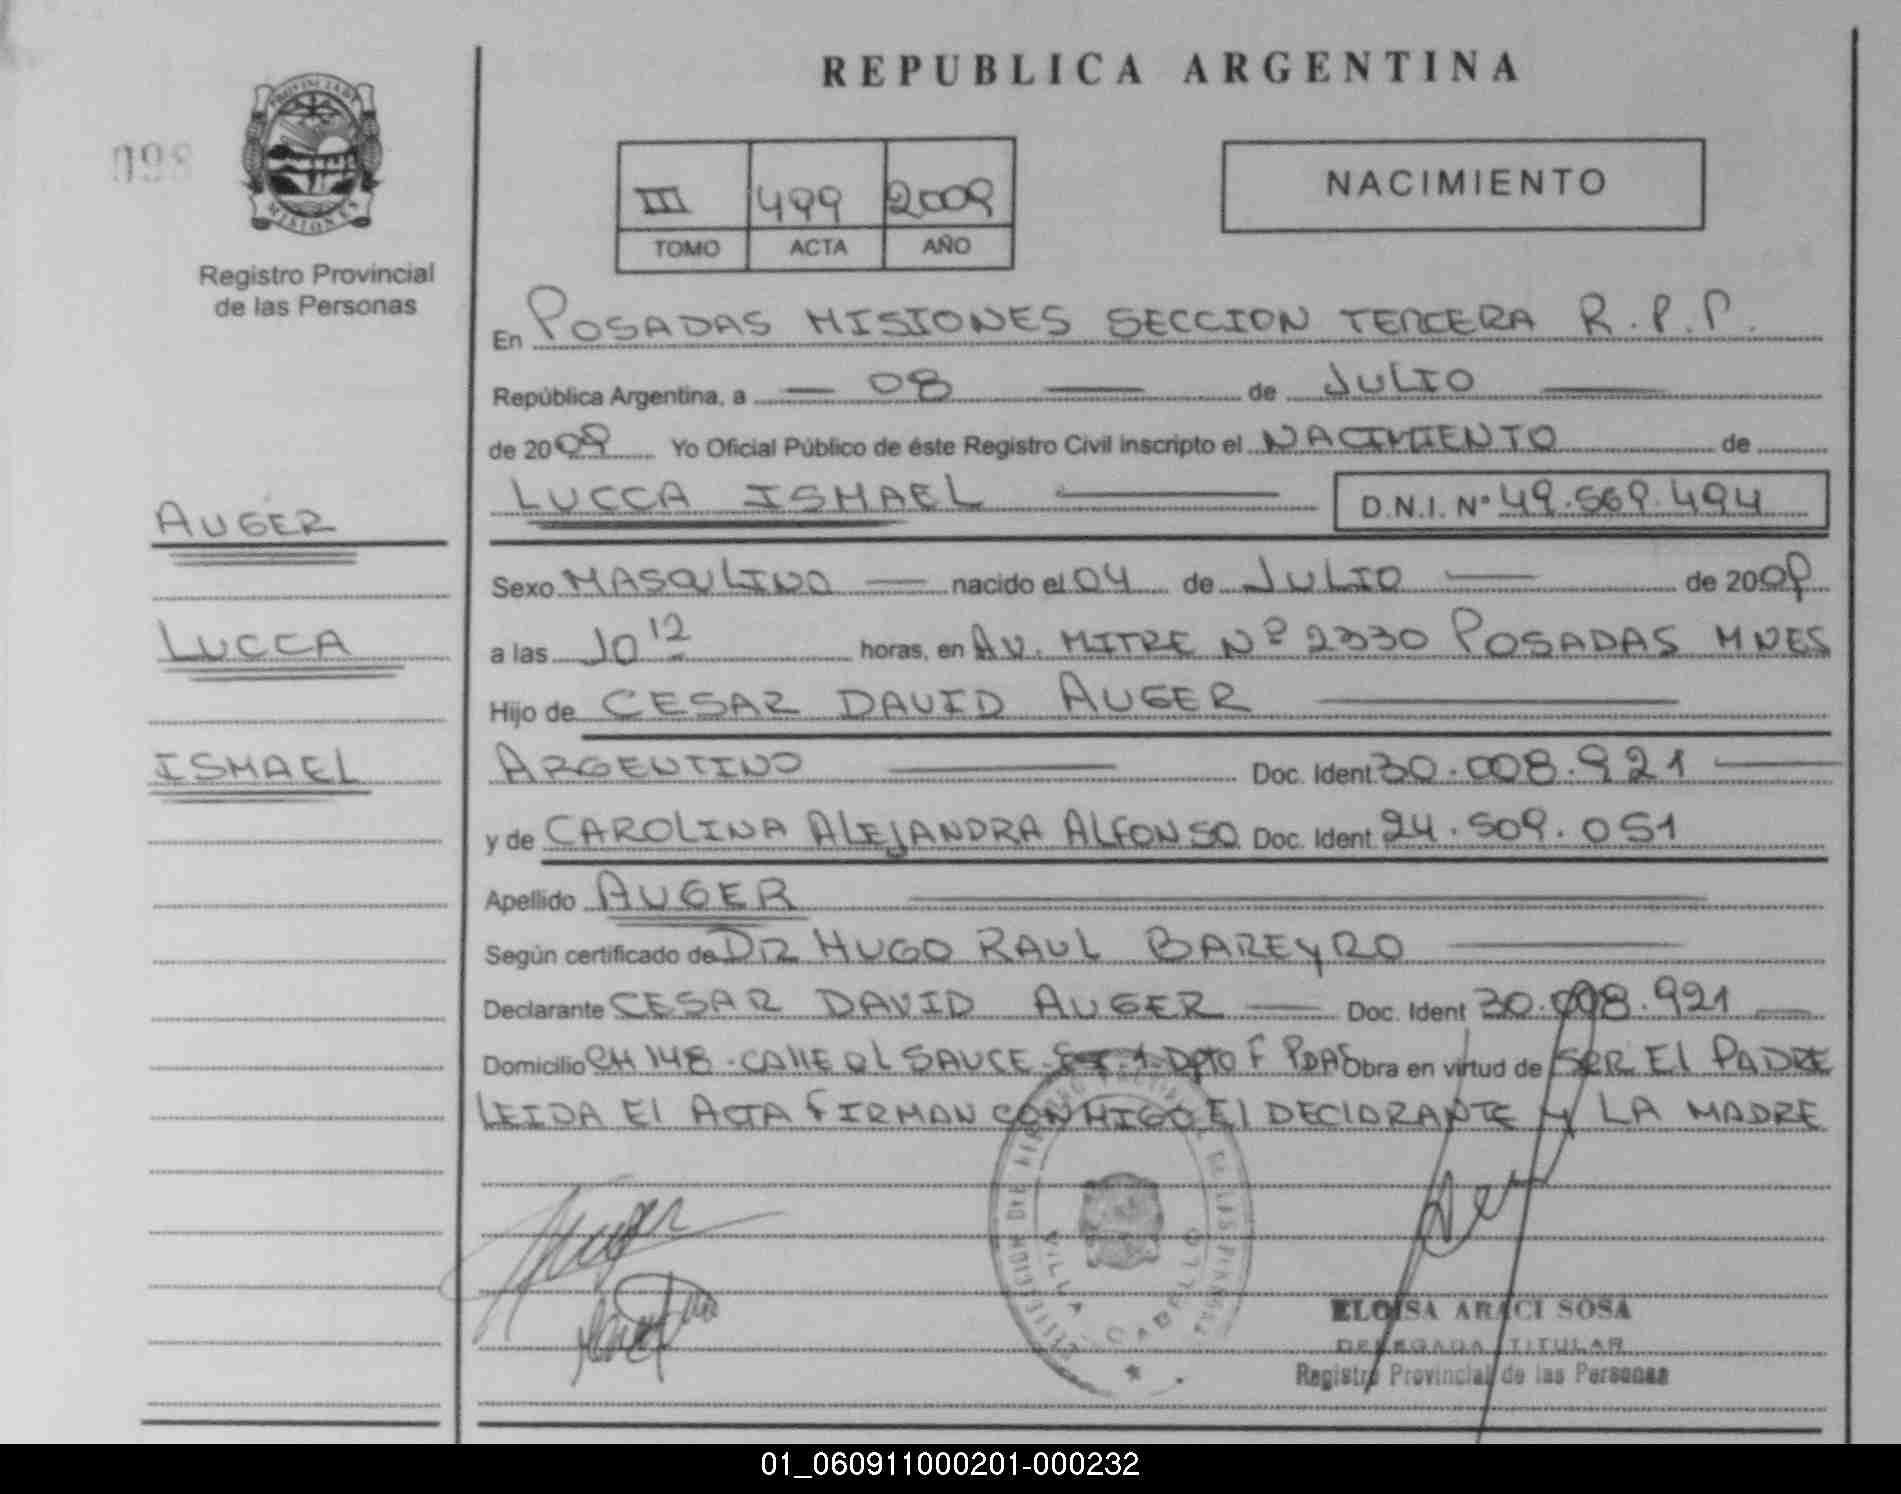 REPUBLICA ARGENTINA
098
PROVINCIA DE MISIONES
Registro Provincial
de las Personas
III 499 2009
TOMO ACTA AÑO
NACIMIENTO
En POSADAS MISIONES SECCION TERCERA R.P.P.
República Argentina, a 08 de JULIO
de 2009 Yo Oficial Público de éste Registro Civil inscripto el NACIMIENTO de
LUCCA ISMAEL D.N.I. Nº 49.569.494
AUGER
LUCCA
ISMAEL
Sexo MASCULINO nacido el 04 de JULIO de 2009
a las 10 12 horas, en AV. MITRE Nº 2330 POSADAS MNES
Hijo de CESAR DAVID AUGER
ARGENTINO Doc. Ident 30.008.921
y de CAROLINA ALEJANDRA ALFONSO Doc. Ident 24.509.051
Apellido AUGER
Según certificado de DR HUGO RAUL BAREYRO
Declarante CESAR DAVID AUGER Doc. Ident 30.008.921
Domicilio CH 148 CALLE el SAUCE 1 DPTO F PDAS Obra en virtud de SER El PADRE
LEIDA El ACTA FIRMAN CONMIGO El DECLARANTE y LA MADRE
VILLA CABELLO
ELOISA ARACI SOSA
DELEGADA TITULAR
Registro Provincial de las Personas
01_060911000201-000232